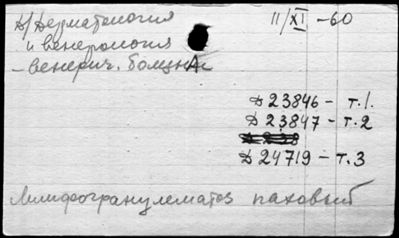 Д/Дерматология 11/XI-60
и венерология
- венерич. болезни
Д 23846 - т.1.
Д 23847 - т.2
Д 24719 - т.3
Лимфогранулематоз паховый